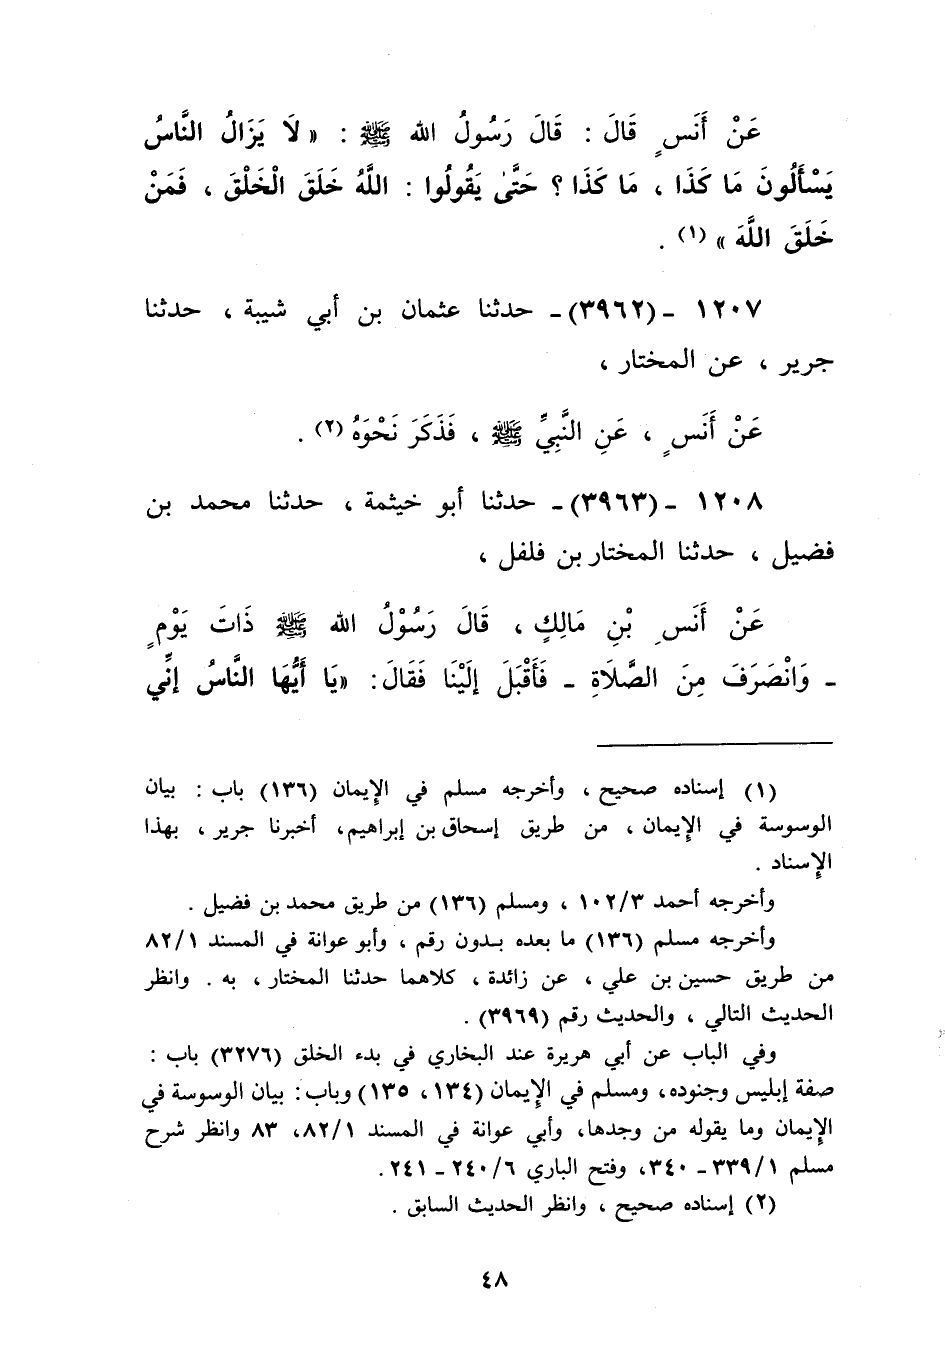 عَنْ أَنَسٍ قَالَ : قَالَ رَسُولُ الله ﷺ : « لَا يَزَالُ النَّاسُ
يَسْأَلُونَ مَا كَذَا ، مَا كَذَا ؟ حَتَّىٰ يَقُولُوا : اللَّهُ خَلَقَ الْخَلْقَ ، فَمَنْ
خَلَقَ اللَّهَ » (١) .
١٢٠٧ - (٣٩٦٢)- حدثنا عثمان بن أبي شيبة ، حدثنا
جرير ، عن المختار ،
عَنْ أَنَسٍ ، عَنِ النَّبِيِّ ﷺ ، فَذَكَرَ نَحْوَهُ (٢) .
١٢٠٨ - (٣٩٦٣)- حدثنا أبو خيثمة ، حدثنا محمد بن
فضيل ، حدثنا المختار بن فلفل ،
عَنْ أَنَسِ بْنِ مَالِكٍ ، قَالَ رَسُوْلُ الله ﷺ ذَاتَ يَوْمٍ
- وَانْصَرَفَ مِنَ الصَّلَاةِ - فَأَقْبَلَ إِلَيْنَا فَقَالَ: «يَا أَيُّهَا النَّاسُ إِنِّي
(١) إسناده صحيح ، وأخرجه مسلم في الإيمان (١٣٦) باب : بيان
الوسوسة في الإيمان ، من طريق إسحاق بن إبراهيم، أخبرنا جرير ، بهذا
الإسناد .
وأخرجه أحمد ١٠٢/٣ ، ومسلم (١٣٦) من طريق محمد بن فضيل .
وأخرجه مسلم (١٣٦) ما بعده بـدون رقم ، وأبو عوانة في المسند ٨٢/١
من طريق حسين بن علي ، عن زائدة ، كلاهما حدثنا المختار ، به . وانظر
الحديث التالي ، والحديث رقم (٣٩٦٩) .
وفي الباب عن أبي هريرة عند البخاري في بدء الخلق (٣٢٧٦) باب :
صفة إبليس وجنوده، ومسلم في الإيمان (١٣٤، ١٣٥) وباب: بيان الوسوسة في
الإيمان وما يقوله من وجدها، وأبي عوانة في المسند ٨٢/١، ٨٣ وانظر شرح
مسلم ٣٣٩/١ - ٣٤٠، وفتح الباري ٢٤٠/٦ - ٢٤١.
(٢) إسناده صحيح ، وانظر الحديث السابق .
٤٨